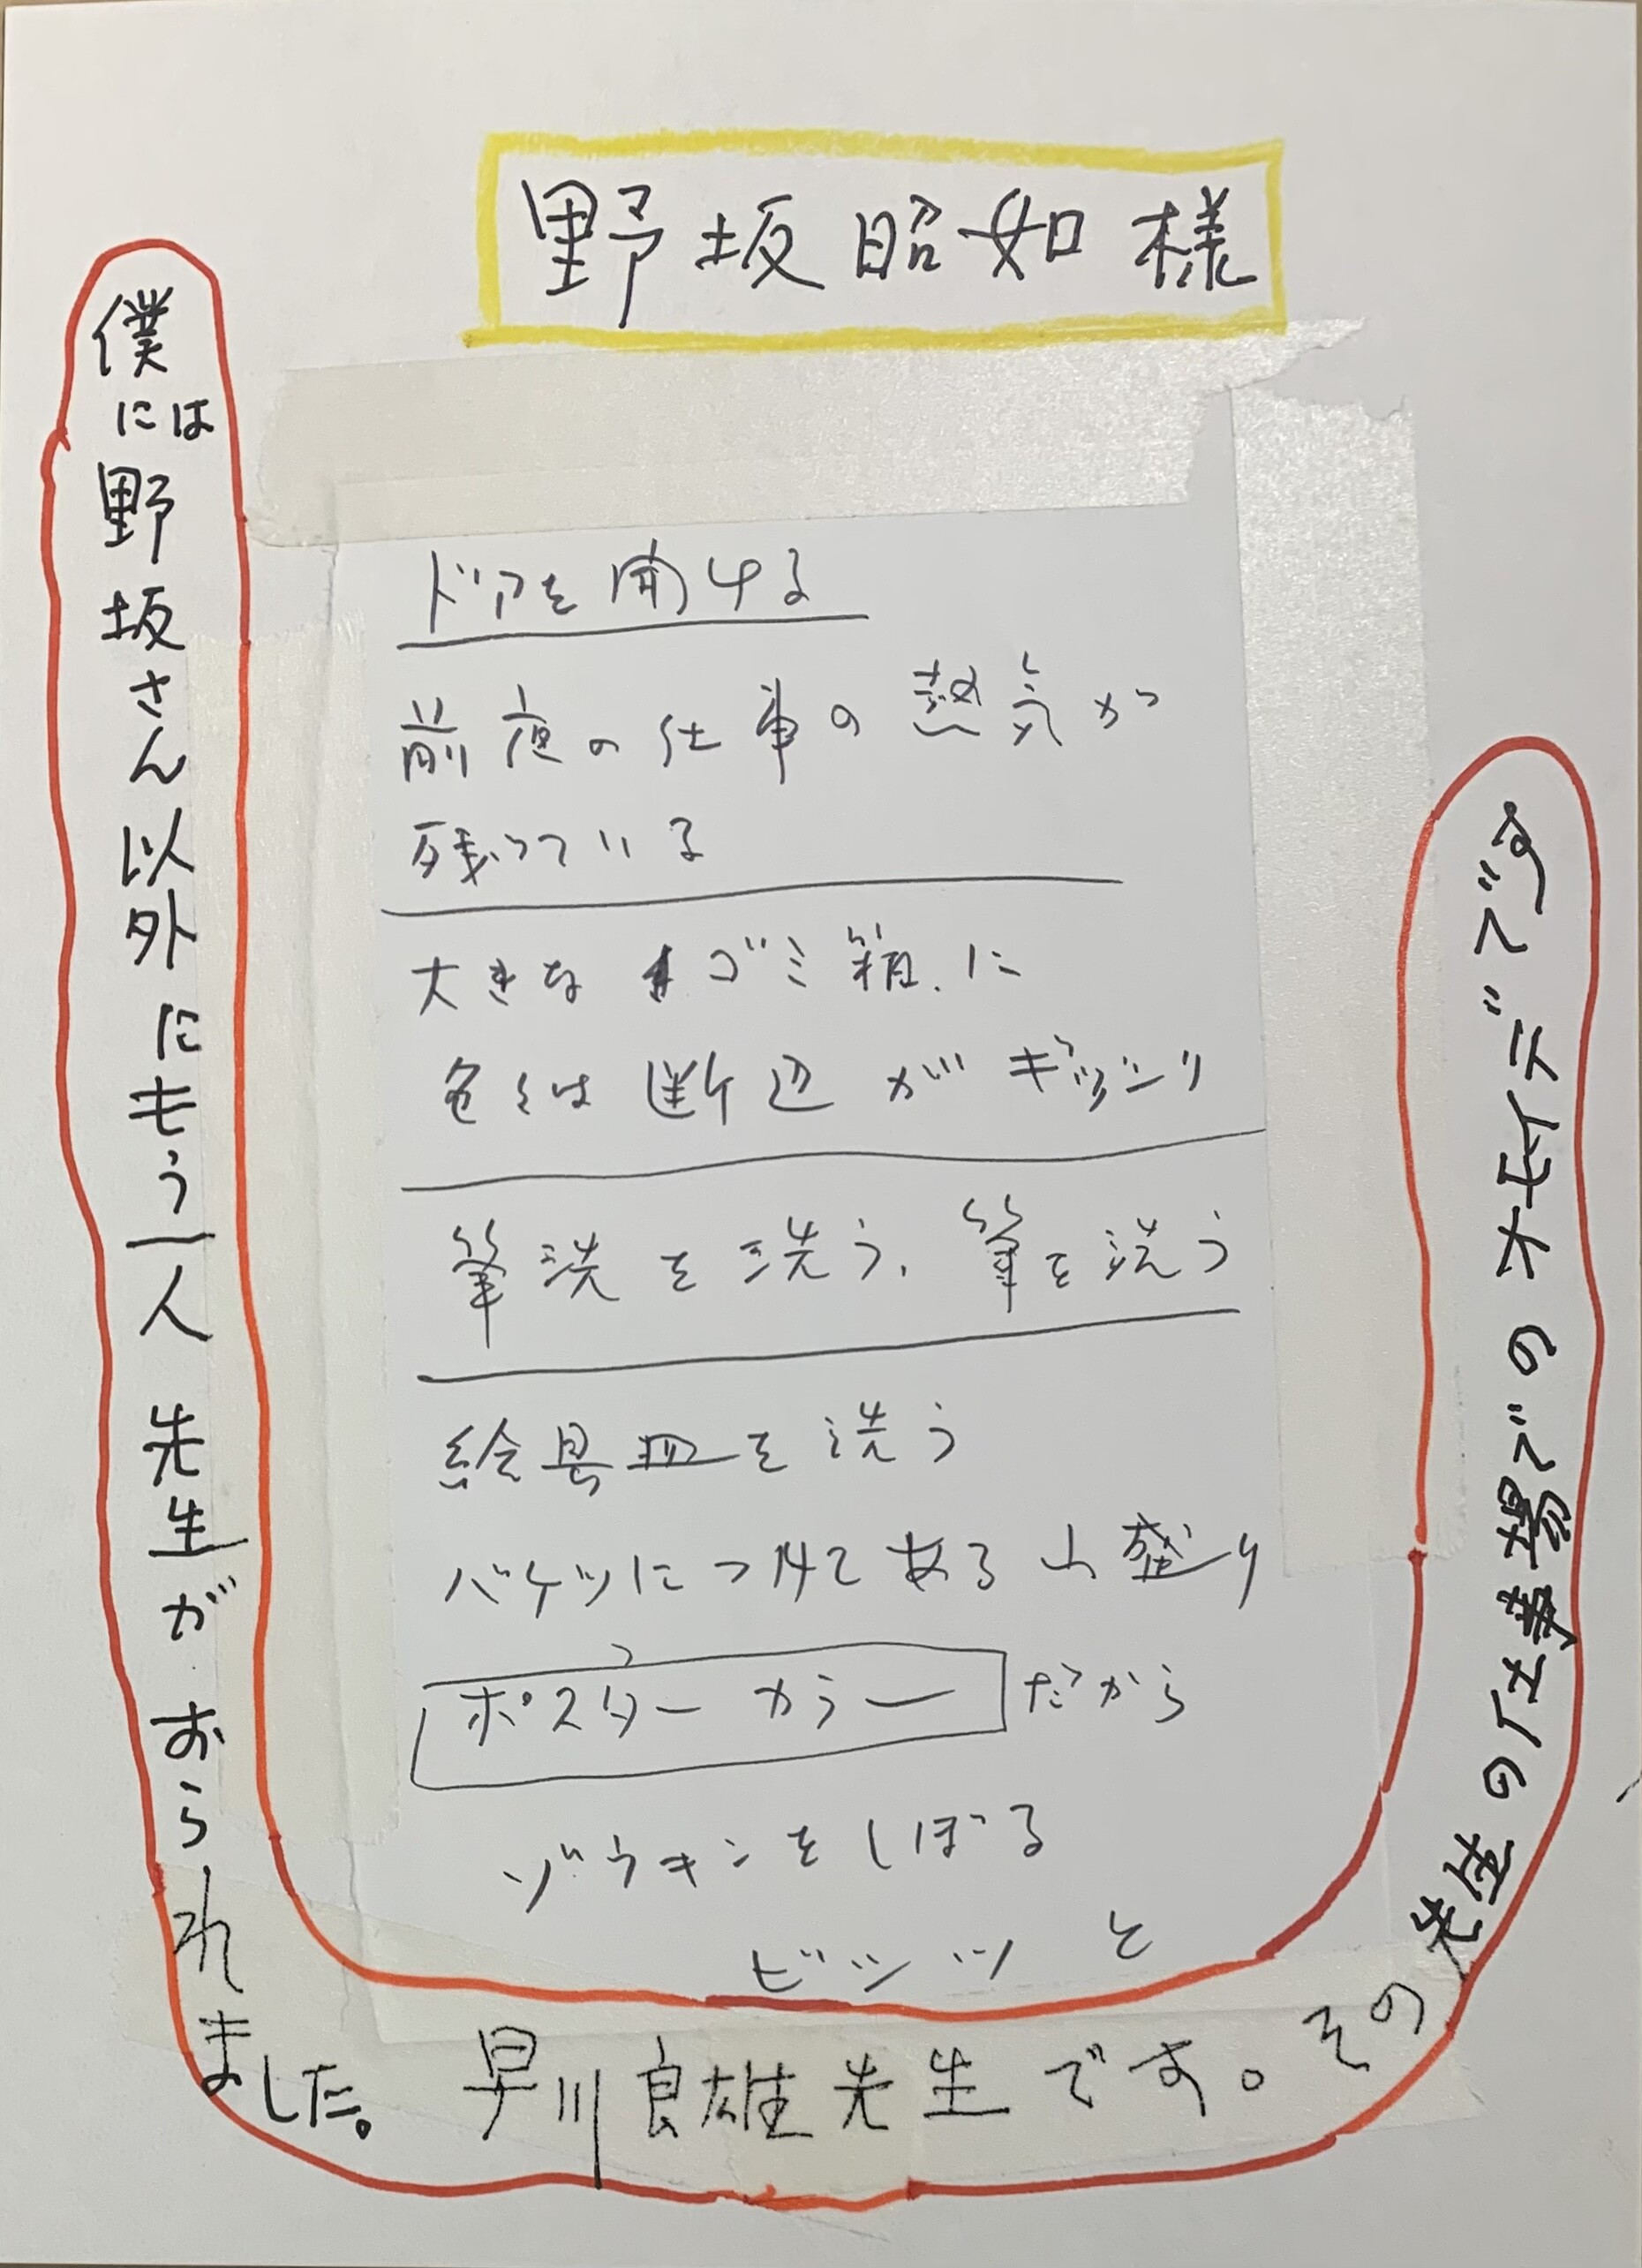 野坂昭如様
僕には野坂さん以外にもう一人先生がおられました。早川良雄先生です。その先生の仕事場でのオモイデです
ドアを開ける
前夜の仕事の熱気が
残っている
大きなゴミ箱に
色々は断辺がギッシリ
筆洗を洗う、筆を洗う
絵具皿を洗う
バケツにつけてある山盛り
ポスターカラーだから
ゾウキンをしぼる
ビシッと